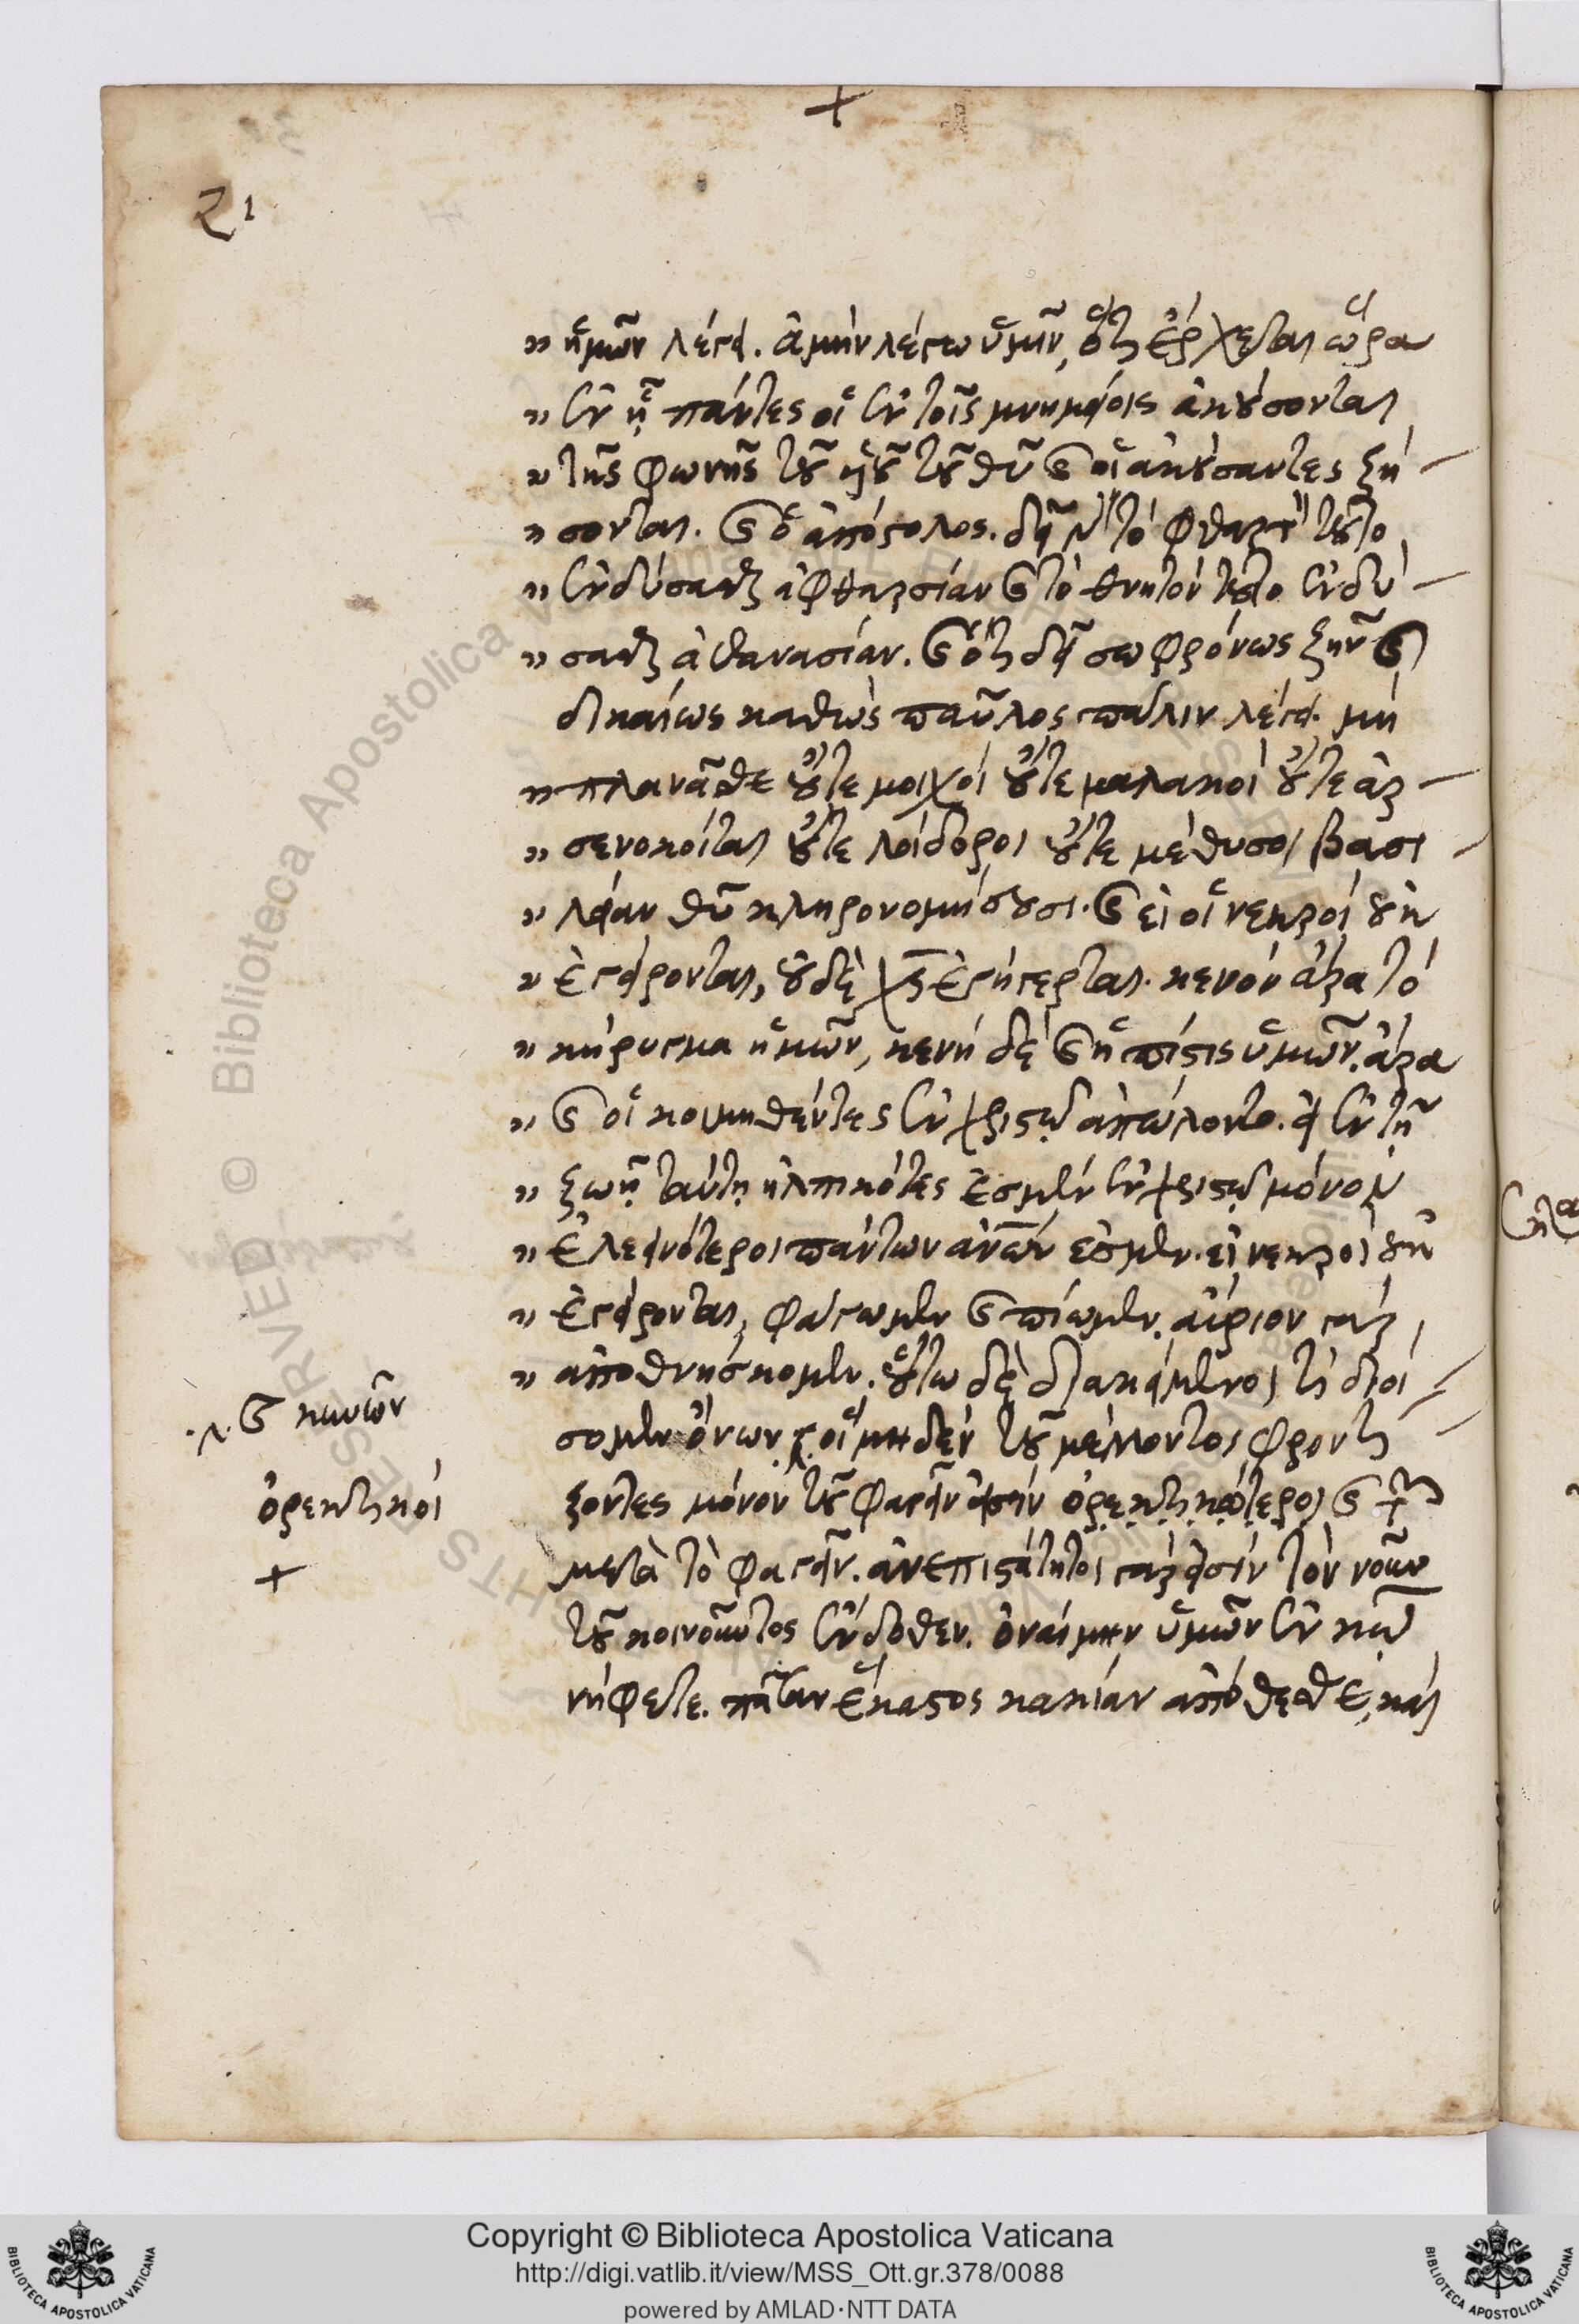 21
» ἡμῶν λέγει. ἀμὴν λέγω ὑμῖν, ὅτι ἔρχεται ὥρα
» ἐν ᾗ πάντες οἱ ἐν τοῖς μνημείοις ἀκούσονται
» τῆς φωνῆς τοῦ υἱοῦ τοῦ θυ καὶ οἱ ἀκούσαντες ζή
» σονται. καὶ ὁ ἀπόστολος. δεῖ τὸ φθαρτὸν τοῦτο
» ἐνδύσασθαι ἀφθαρσίαν καὶ τὸ θνητὸν τοῦτο ἐνδύ
» σασθαι ἀθανασίαν. καὶ ὅτι δεῖ σωφρόνως ζῆν καὶ
δικαίως καθὼς παῦλος πάλιν λέγει. μὴ
» πλανᾶσθε οὔτε μοιχοὶ οὔτε μαλακοὶ οὔτε ἀρ
» σενοκοῖται οὔτε λοίδοροι οὔτε μέθυσοι βασι
» λείαν θυ κληρονομήσουσι. καὶ εἰ οἱ νεκροὶ οὐκ
» ἐγείρονται, οὐδὲ χς ἐγήγερται. κενὸν ἄρα τὸ
» κήρυγμα ἡμῶν, κενὴ δὲ καὶ ἡ πίστις ὑμῶν. ἄρα
» καὶ οἱ κοιμηθέντες ἐν χριστῷ ἀπώλοντο. εἰ ἐν τῇ
» ζωῇ ταύτῃ ἠλπικότες ἐσμὲν ἐν χριστῷ μόνον
» ἐλεεινότεροι πάντων ἀνων ἐσμέν. εἰ νεκροὶ οὐκ
» ἐγείρονται, φάγωμεν καὶ πίωμεν. αὔριον γὰρ
» ἀποθνήσκομεν. οὕτω δὲ διακείμενοι τί διοί
σομεν ὄνων οἳ μηδὲν τοῦ μέλλοντος φροντί
καὶ κυνῶν
ζοντες μόνον τοῦ φαγεῖν εἰσὶν ὀρεκτικώτεροι καὶ
ὀρεκτικοί
μετὰ τὸ φαγεῖν. ἀνεπιστάτητοι γάρ εἰσιν τὸν νοῦν
τοῦ κινοῦντος ἔνδοθεν. ὀναίμην ὑμῶν ἐν κω
νήφετε. πᾶσαν ἕκαστος κακίαν ἀπόθεσθε, καὶ
Copyright © Biblioteca Apostolica Vaticana
http://digi.vatlib.it/view/MSS_Ott.gr.378/0088
powered by AMLAD·NTT DATA
BIBLIOTECA APOSTOLICA VATICANA
BIBLIOTECA APOSTOLICA VATICANA